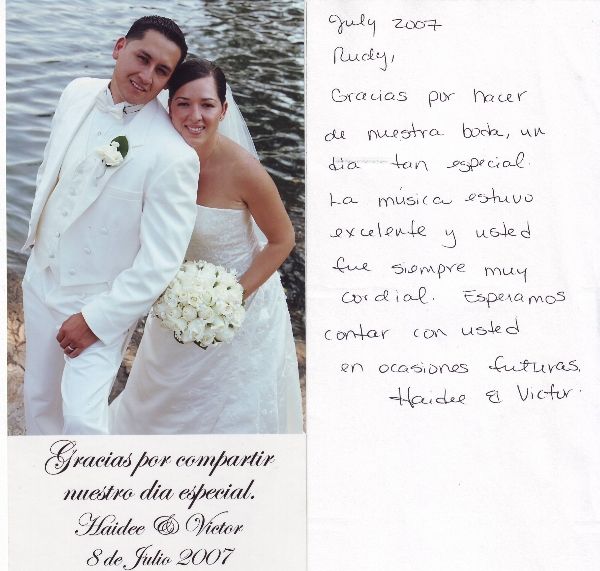 Gracias por compartir
nuestro dia especial.
Haidee & Victor
8 de Julio 2007
July 2007
Rudy,
Gracias por hacer
de nuestra boda, un
dia tan especial.
La música estuvo
excelente y usted
fue siempre muy
cordial. Esperamos
contar con usted
en ocasiones futuras.
Haidee & Victor.